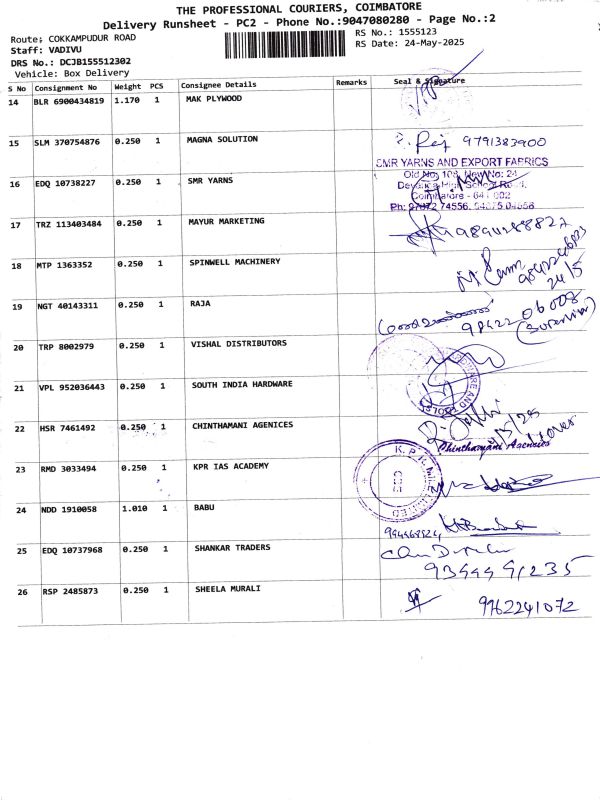 THE PROFESSIONAL COURIERS, COIMBATORE
Delivery Runsheet - PC2 - Phone No.:9047080280 - Page No.:2
Route: COKKAMPUDUR ROAD
Staff: VADIVU
DRS No.: DCJB155512302
Vehicle: Box Delivery
RS No.: 1555123
RS Date: 24-May-2025
S No Consignment No Weight PCS Consignee Details Remarks Seal & Signature
14 BLR 6900434819 1.170 1 MAK PLYWOOD
15 SLM 370754876 0.250 1 MAGNA SOLUTION 9791383900
SMR YARNS AND EXPORT FABRICS
Old No. 108, New No: 24
High School Road,
Coimbatore - 641 002
16 EDQ 10738227 0.250 1 SMR YARNS
17 TRZ 113403484 0.250 1 MAYUR MARKETING
18 MTP 1363352 0.250 1 SPINWELL MACHINERY
24/5
19 NGT 40143311 0.250 1 RAJA 98422 06008
20 TRP 8002979 0.250 1 VISHAL DISTRIBUTORS
21 VPL 952036443 0.250 1 SOUTH INDIA HARDWARE
22 HSR 7461492 0.250 1 CHINTHAMANI AGENICES
Chinthamani Agencies
23 RMD 3033494 0.250 1 KPR IAS ACADEMY
24 NDD 1910058 1.010 1 BABU
25 EDQ 10737968 0.250 1 SHANKAR TRADERS
9344491235
26 RSP 2485873 0.250 1 SHEELA MURALI 9962241072